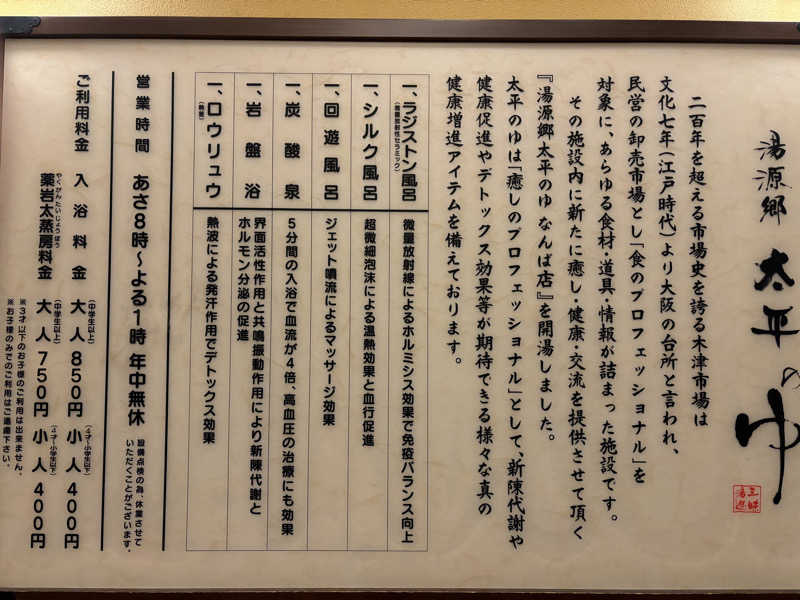 湯源郷 太平のゆ
三味湯進
二百年を超える市場史を誇る木津市場は
文化七年（江戸時代）より大阪の台所と言われ、
民営の卸売市場とし「食のプロフェッショナル」を
対象に、あらゆる食材・道具・情報が詰まった施設です。
その施設内に新たに癒し・健康・交流を提供させて頂く
『湯源郷太平のゆ なんば店』を開湯しました。
太平のゆは「癒しのプロフェッショナル」として、新陳代謝や
健康促進やデトックス効果等が期待できる様々な真の
健康増進アイテムを備えております。
一、ラジストン風呂（微量放射性セラミック） 微量放射線によるホルミシス効果で免疫バランス向上
一、シルク風呂 超微細泡沫による温熱効果と血行促進
一、回遊風呂 ジェット噴流によるマッサージ効果
一、炭酸泉 5分間の入浴で血流が4倍、高血圧の治療にも効果
一、岩盤浴 界面活性作用と共鳴振動作用により新陳代謝と
ホルモン分泌の促進
一、ロウリュウ（熱波） 熱波による発汗作用でデトックス効果
営業時間 あさ8時〜よる1時 年中無休 設備点検の為、休業させて
いただくことがございます。
ご利用料金 入浴料金 大人（中学生以上）850円 小人（4才〜小学生以下）400円
薬岩太蒸房料金（やくがんたいじょうぼう） 大人（中学生以上）750円 小人（4才〜小学生以下）400円
※3才以下のお子様のご利用は出来ません。
※お子様のみでのご利用はご遠慮下さい。